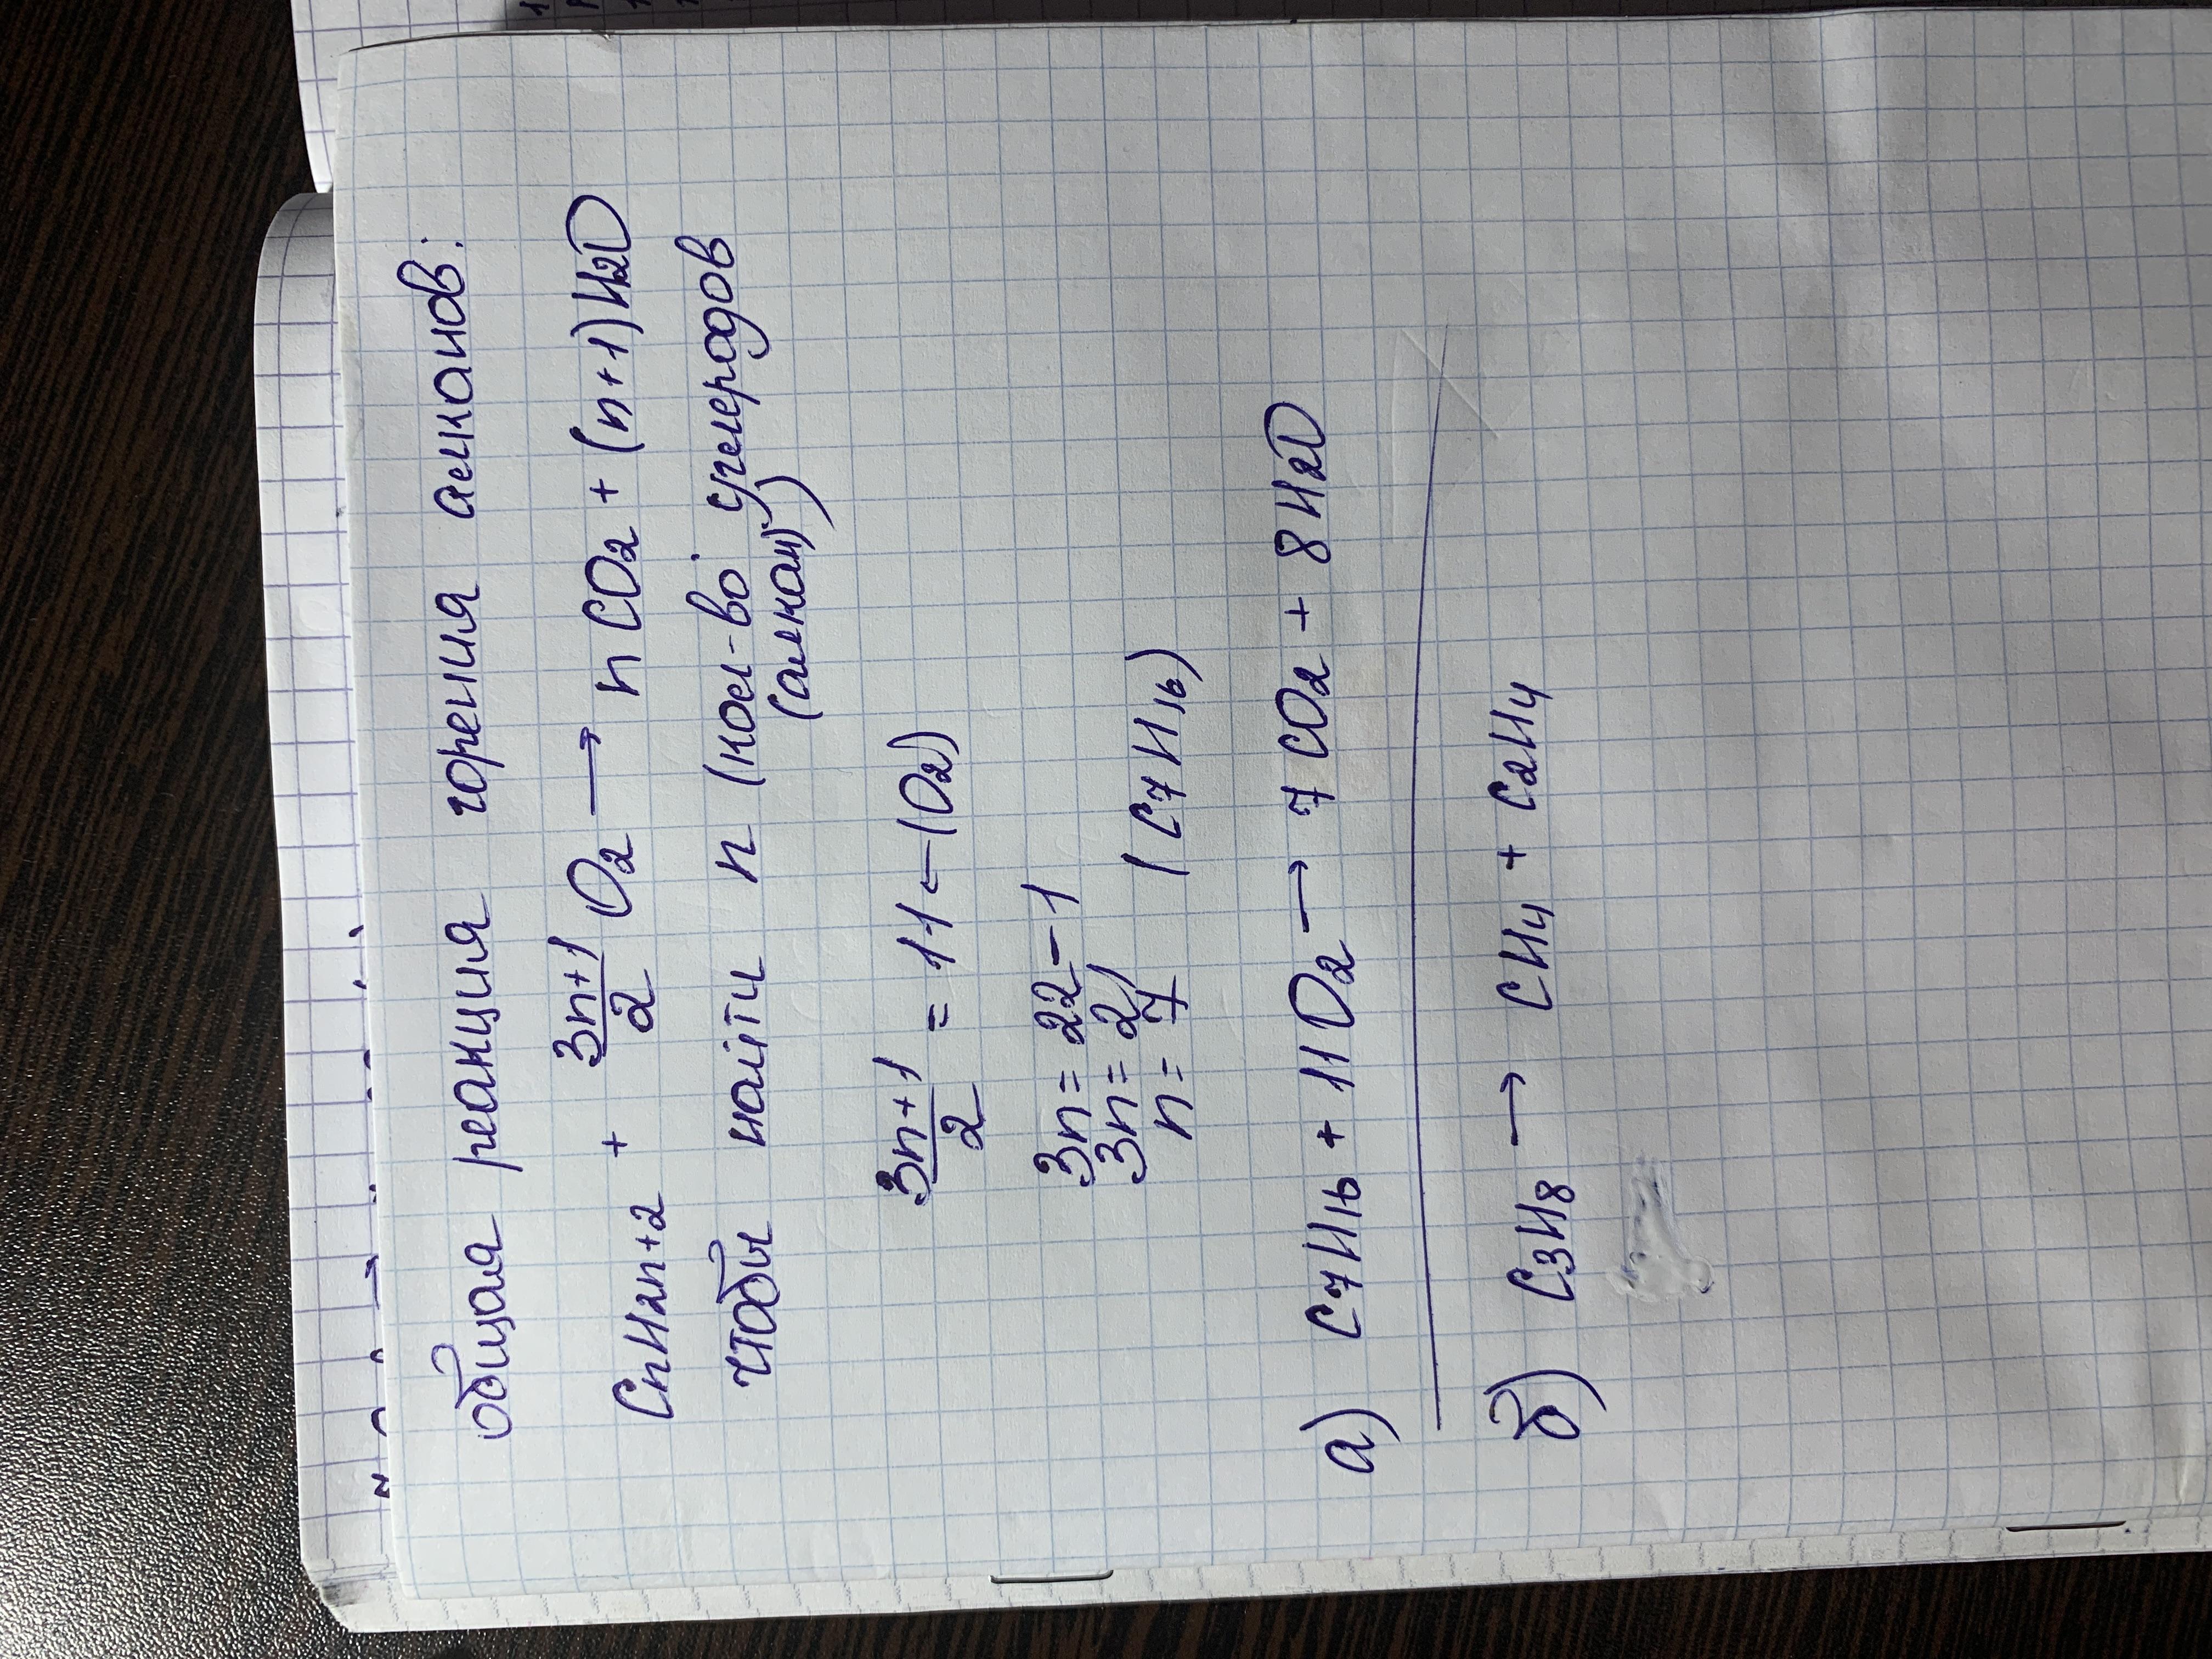 общая реакция горения алканов:
CnH2n+2 + 3n+1/2 O2 → n CO2 + (n+1)H2O
чтобы найти n (кол-во углеродов
(алкан))
3n+1/2 = 11 ← (O2)
3n = 22 - 1
3n = 21
n = 7 (C7H16)
а) C7H16 + 11O2 → 7 CO2 + 8 H2O
б) C3H8 → CH4 + C2H4